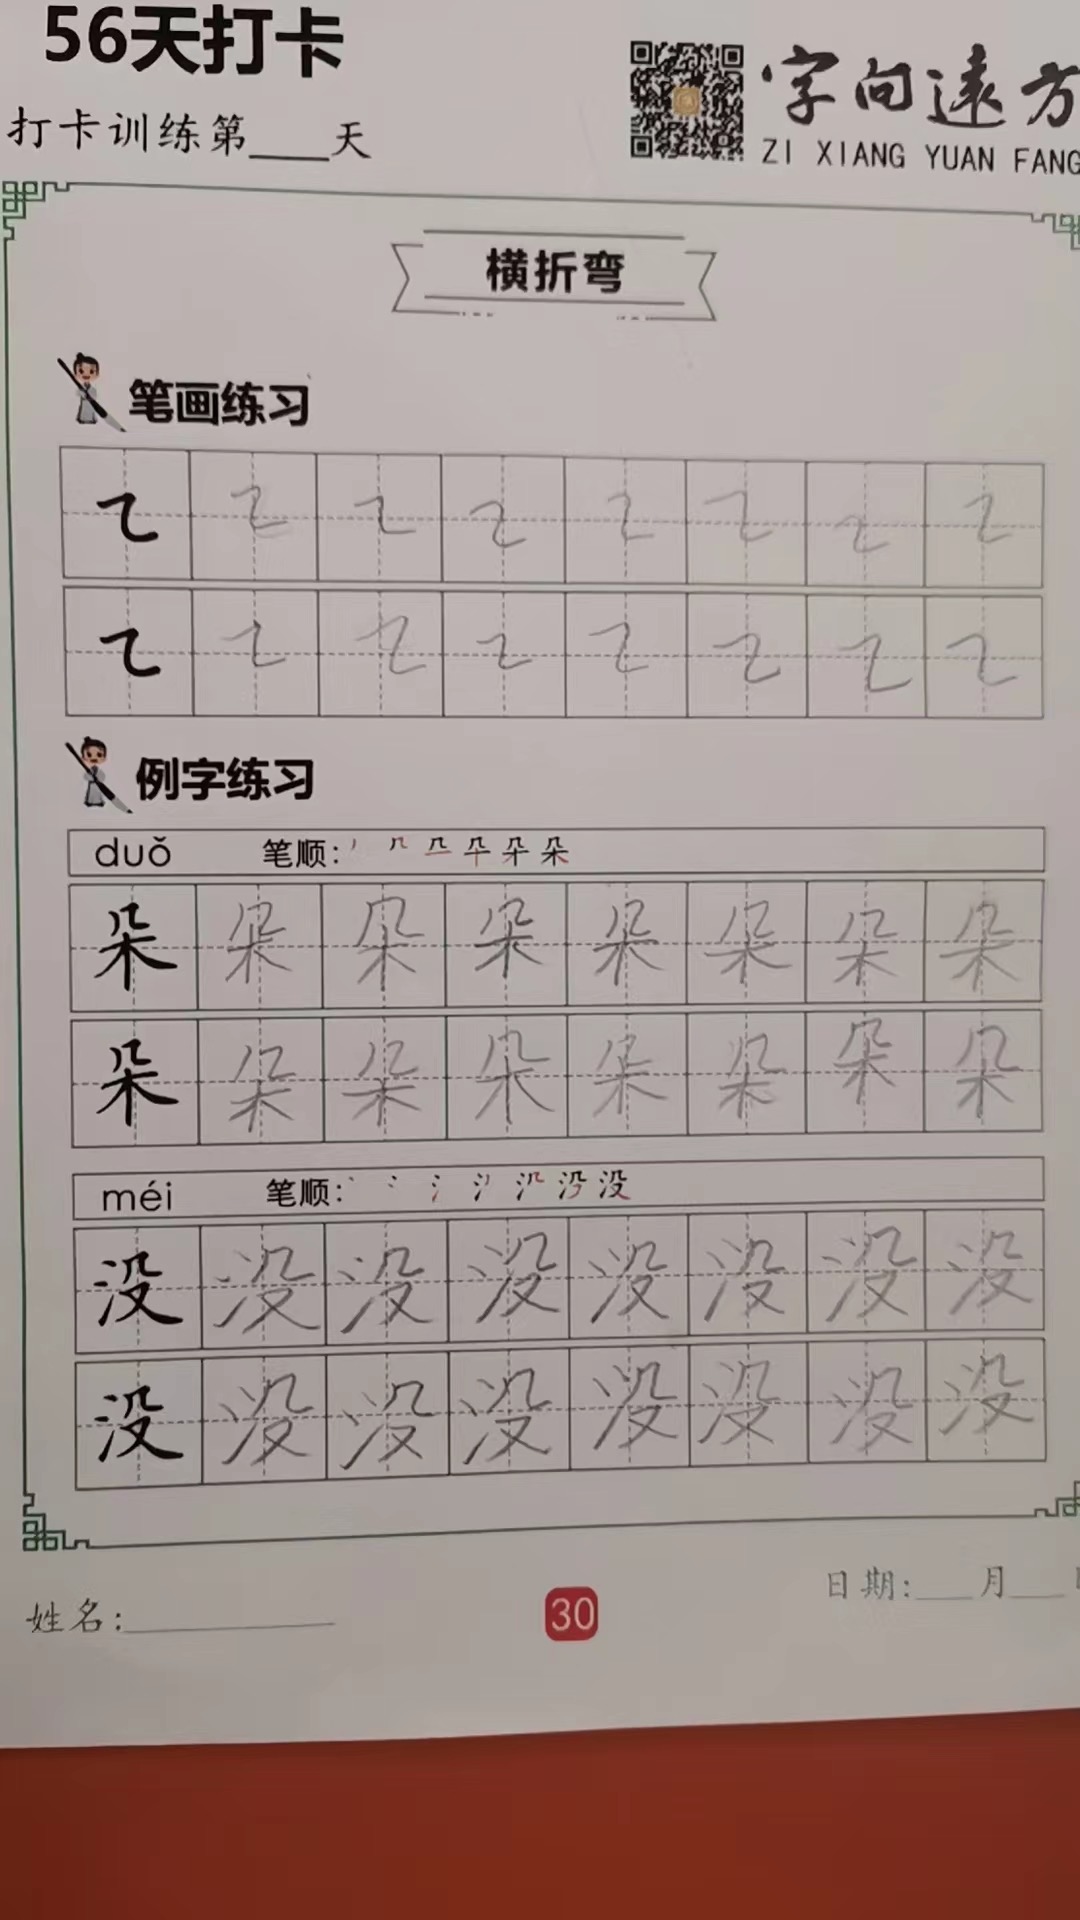 56天打卡
打卡训练第____天
字向遠方
ZI XIANG YUAN FANG
横折弯
笔画练习
㇍ ㇍ ㇍ ㇍ ㇍ ㇍ ㇍ ㇍
㇍ ㇍ ㇍ ㇍ ㇍ ㇍ ㇍ ㇍
例字练习
duǒ 笔顺: 朵
朵 朵 朵 朵 朵 朵 朵 朵
朵 朵 朵 朵 朵 朵 朵 朵
méi 笔顺: 没
没 没 没 没 没 没 没 没
没 没 没 没 没 没 没 没
姓名:____________
30
日期:____月____